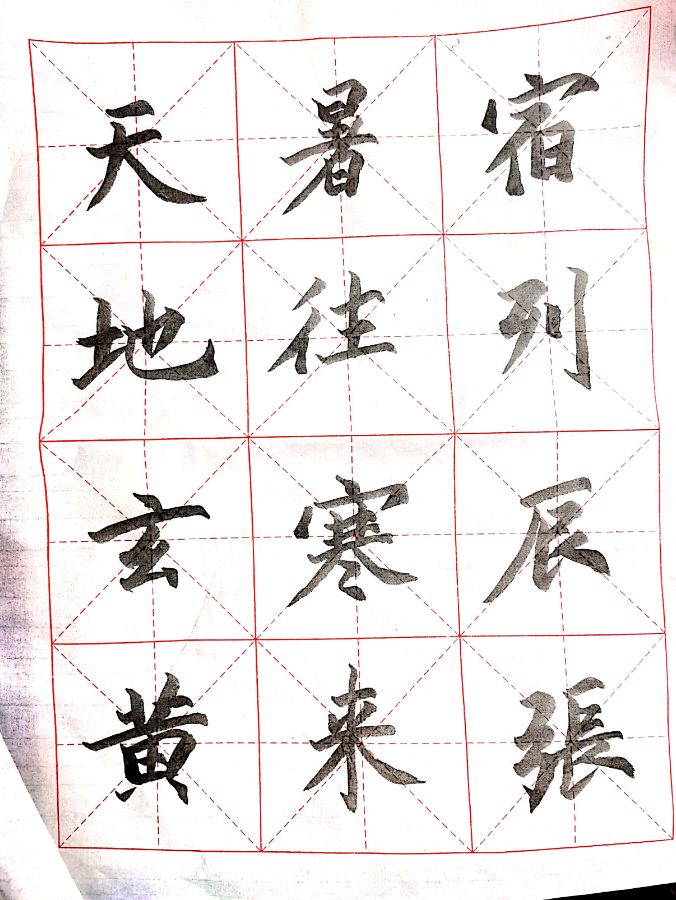 宿列辰張
暑往寒来
天地玄黄